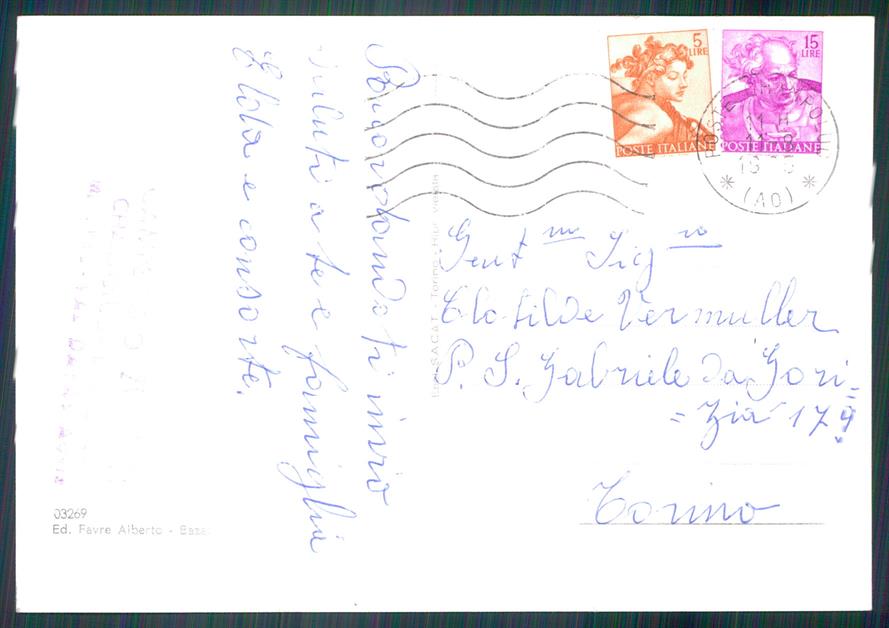 Ricordandoti invio
saluti a te e famiglia
Elda e consorte.
5
LIRE
POSTE ITALIANE
15
LIRE
POSTE ITALIANE
(AO)
Gent.ma Sig.ra
Clotilde Vermuller
P. S. Gabriele da Gori=
=zia 179
Torino
03269
Ed. Favre Alberto -